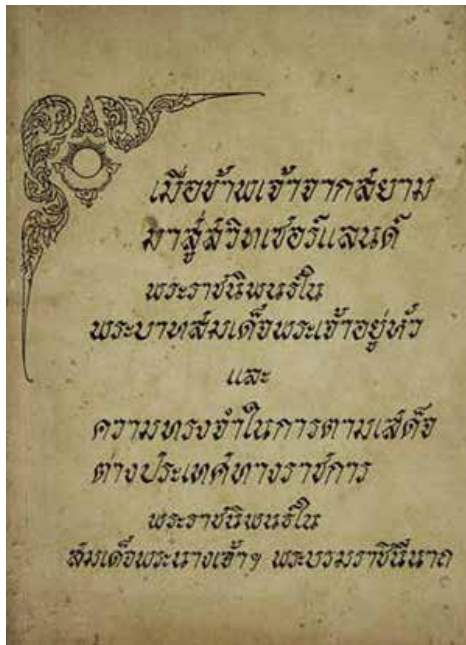 เมื่อข้าพเจ้าจากสยาม
มาสู่สวิทเซอร์แลนด์
พระราชนิพนธ์ใน
พระบาทสมเด็จพระเจ้าอยู่หัว
และ
ความทรงจำในการตามเสด็จ
ต่างประเทศทางราชการ
พระราชนิพนธ์ใน
สมเด็จพระนางเจ้าฯ พระบรมราชินีนาถ